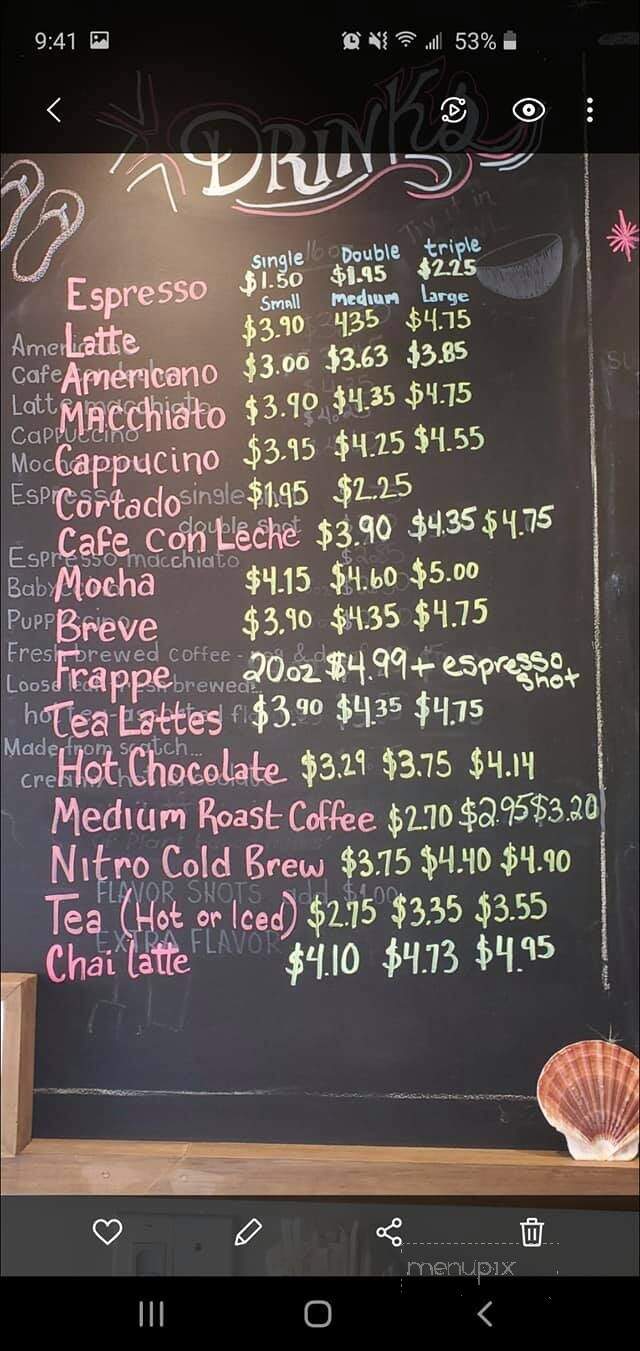 9:41 53%
DRINKS
Try it in
single Double triple
Espresso $1.50 $1.95 $2.25
Small Medium Large
Latte $3.90 435 $4.75
Americano $3.00 $3.63 $3.85
MAcchiato $3.90 $4.35 $4.75
Cappuccino
Cappucino $3.95 $4.25 $4.55
Espresso single
Cortado $1.95 $2.25
double shot
Cafe con Leche $3.90 $4.35 $4.75
Espresso macchiato
Mocha $4.15 $4.60 $5.00
Breve $3.90 $4.35 $4.75
Fresh brewed coffee
Frappe 20oz $4.99 + espresso shot
Tea Lattes $3.90 $4.35 $4.75
Made from scatch...
Hot Chocolate $3.29 $3.75 $4.14
Medium Roast Coffee $2.70 $2.95 $3.20
Nitro Cold Brew $3.75 $4.40 $4.90
FLAVOR SHOTS add $1.00
Tea (Hot or Iced) $2.75 $3.35 $3.55
EXTRA FLAVOR
Chai latte $4.10 $4.73 $4.95
menupix